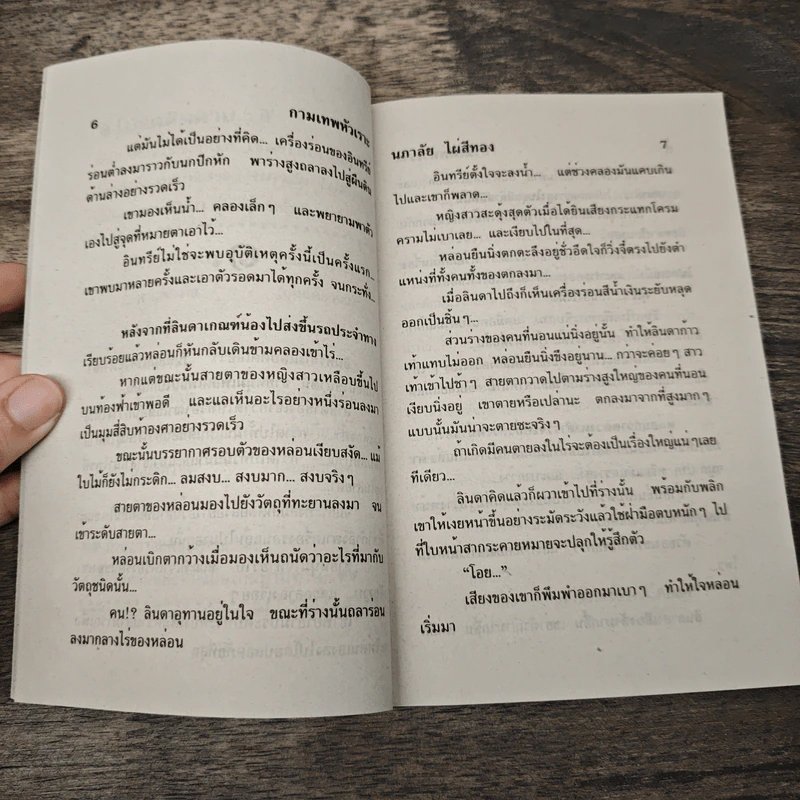 6
กามเทพหัวเราะ
แต่มันไม่ได้เป็นอย่างที่คิด... เครื่องร่อนของอินทรีย์
ร่อนต่ำลงมาราวกับนกปีกหัก พาร่างสูงถลาลงไปสู่ผืนดิน
ด้านล่างอย่างรวดเร็ว
เขามองเห็นน้ำ... คลองเล็กๆ และพยายามพาตัว
เองไปสู่จุดที่หมายตาเอาไว้...
อินทรีย์ไม่ใช่จะพบอุบัติเหตุครั้งนี้เป็นครั้งแรก...
เขาพบมาหลายครั้งและเอาตัวรอดมาได้ทุกครั้ง จนกระทั่ง...
หลังจากที่ลินดาเกณฑ์น้องไปส่งขึ้นรถประจำทาง
เรียบร้อยแล้วหล่อนก็หันกลับเดินข้ามคลองเข้าไร่...
หากแต่ขณะนั้นสายตาของหญิงสาวเหลือบขึ้นไป
บนท้องฟ้าเข้าพอดี และแลเห็นอะไรอย่างหนึ่งร่อนลงมา
เป็นมุมสี่สิบห้าองศาอย่างรวดเร็ว
ขณะนั้นบรรยากาศรอบตัวของหล่อนเงียบสงัด... แม้
ใบไม้ก็ยังไม่กระดิก... ลมสงบ... สงบมาก... สงบจริงๆ
สายตาของหล่อนมองไปยังวัตถุที่ทะยานลงมา จน
เข้าระดับสายตา...
หล่อนเบิกตากว้างเมื่อมองเห็นถนัดว่าอะไรที่มากับ
วัตถุชนิดนั้น...
คน!? ลินดาอุทานอยู่ในใจ ขณะที่ร่างนั้นถลาร่อน
ลงมากลางไร่ของหล่อน
นภาลัย ไผ่สีทอง
7
อินทรีย์ตั้งใจจะลงน้ำ... แต่ช่วงคลองมันแคบเกิน
ไปและเขาก็พลาด...
หญิงสาวสะดุ้งสุดตัวเมื่อได้ยินเสียงกระแทกโครม
ครามไม่เบาเลย... และเงียบไปในที่สุด...
หล่อนยืนนิ่งตกตะลึงอยู่ชั่วอึดใจก็วิ่งจี๋ตรงไปยังตำ
แหน่งที่ทั้งคนทั้งของตกลงมา...
เมื่อลินดาไปถึงก็เห็นเครื่องร่อนสีน้ำเงินระยับหลุด
ออกเป็นชิ้นๆ...
ส่วนร่างของคนที่นอนแน่นิ่งอยู่นั้น ทำให้ลินดาก้าว
เท้าแทบไม่ออก หล่อนยืนนิ่งขึงอยู่นาน... กว่าจะค่อยๆ สาว
เท้าเข้าไปช้าๆ สายตากวาดไปตามร่างสูงใหญ่ของคนที่นอน
เงียบนิ่งอยู่ เขาตายหรือเปล่านะ ตกลงมาจากที่สูงมากๆ
แบบนั้นมันน่าจะตายซะจริงๆ
ถ้าเกิดมีคนตายลงในไร่จะต้องเป็นเรื่องใหญ่แน่ๆเลย
ทีเดียว...
ลินดาคิดแล้วก็ผวาเข้าไปที่ร่างนั้น พร้อมกับพลิก
เขาให้เงยหน้าขึ้นอย่างระมัดระวังแล้วใช้ฝ่ามือตบหนักๆ ไป
ที่ใบหน้าสากระคายหมายจะปลุกให้รู้สึกตัว
“โอย...”
เสียงของเขาก็พึมพำออกมาเบาๆ ทำให้ใจหล่อน
เริ่มมา